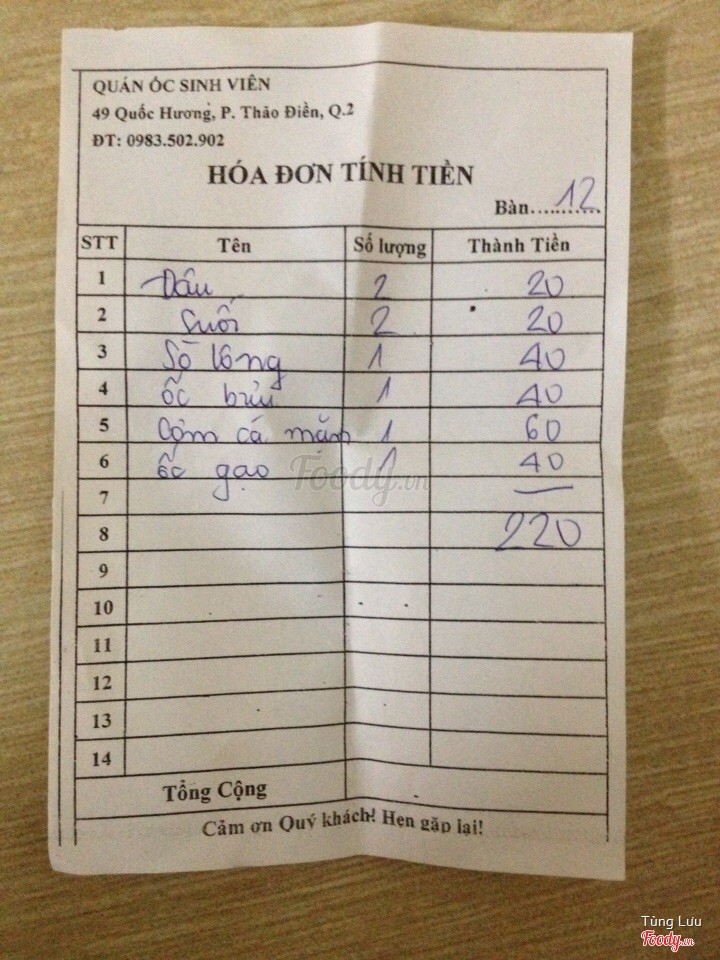 QUÁN ỐC SINH VIÊN
49 Quốc Hương, P. Thảo Điền, Q.2
ĐT: 0983.502.902
HÓA ĐƠN TÍNH TIỀN
Bàn............ 12
STT Tên Số lượng Thành Tiền
1 Dâu 2 20
2 Suối 2 20
3 Sò lông 1 40
4 ốc bươu 1 40
5 Cơm cá mặn 1 60
6 ốc gạo 1 40
7
8 220
9
10
11
12
13
14
Tổng Cộng
Cảm ơn Quý khách! Hẹn gặp lại!
Foody.vn
Tùng Lưu
Foody.vn